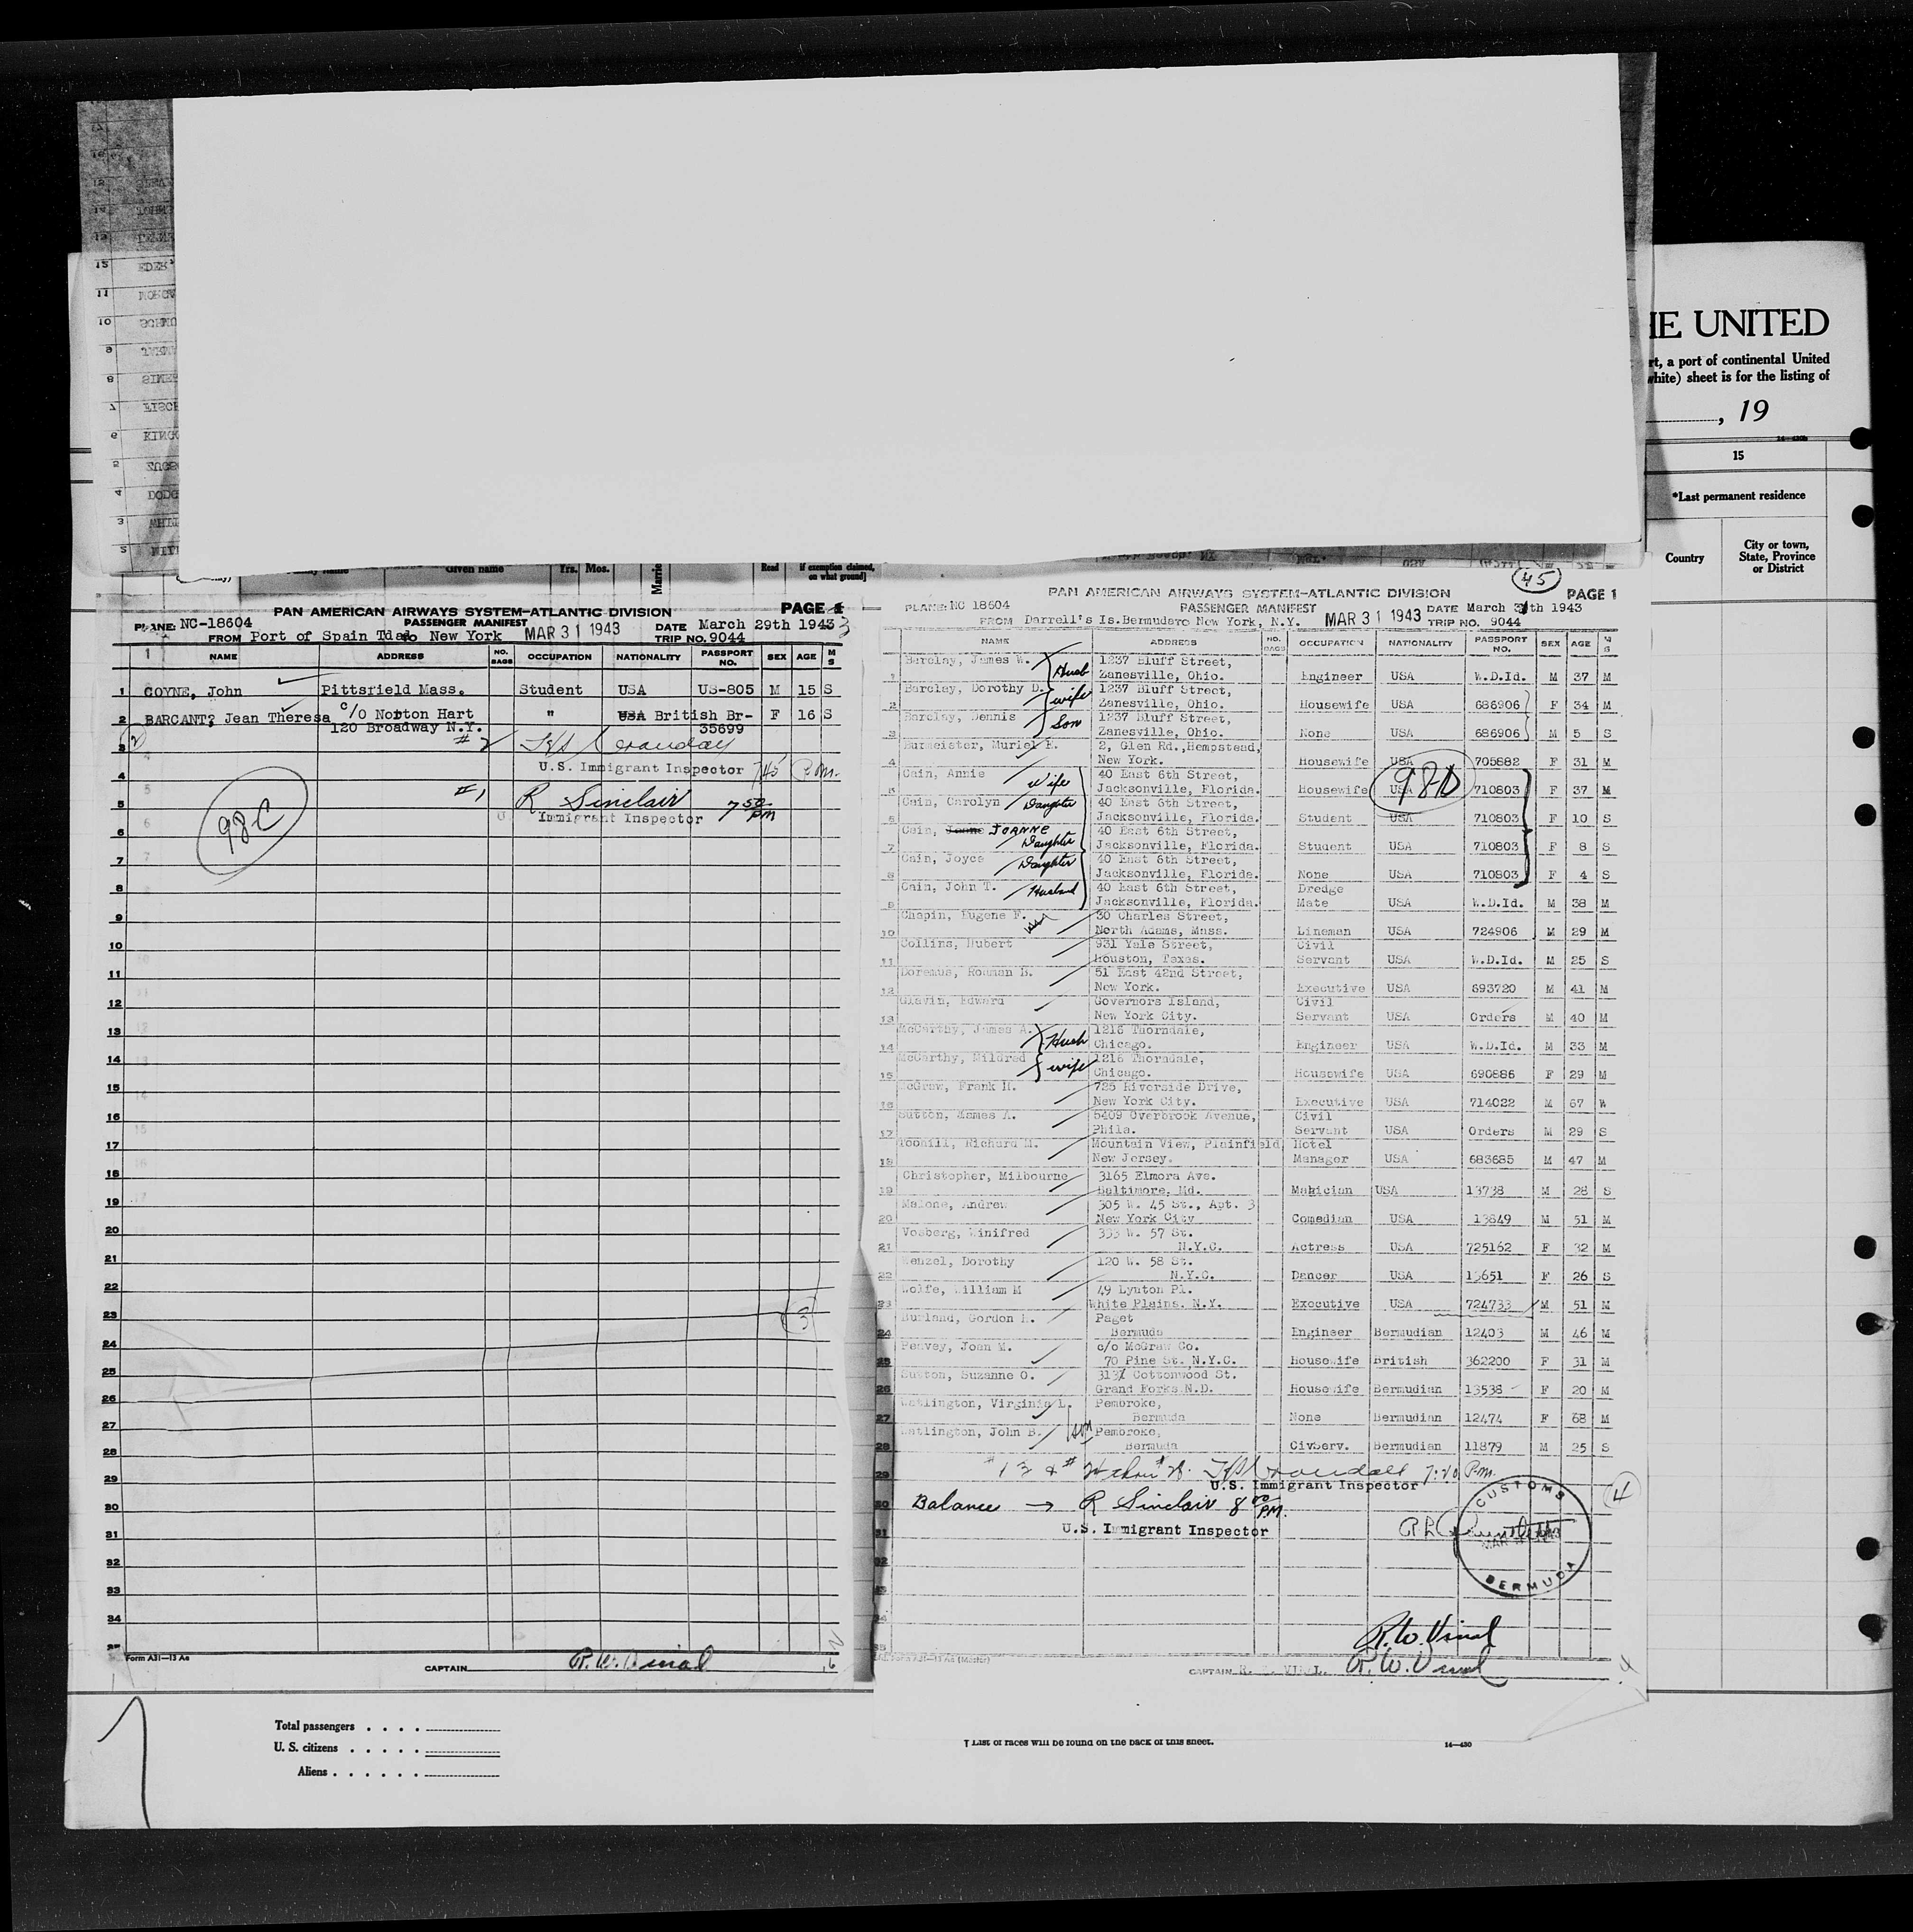 HE UNITED
rt, a port of continental United
white) sheet is for the listing of
, 19
14—430b
15
*Last permanent residence
Country
City or town, State, Province or District
Given name Yrs. Mos. Read if exemption claimed, on what ground]
PAN AMERICAN AIRWAYS SYSTEM-ATLANTIC DIVISION PAGE
PLANE: NC-18604 PASSENGER MANIFEST MAR 31 1943 DATE March 29th 1943
FROM Port of Spain Tdad New York TRIP NO. 9044
NAME ADDRESS NO. BAGS OCCUPATION NATIONALITY PASSPORT NO. SEX AGE M S
1 COYNE, John Pittsfield Mass. Student USA US-805 M 15 S
2 BARCANT, Jean Theresa c/o Norton Hart " USA British Br- F 16 S
120 Broadway N.Y. 35699
#2
U.S. Immigrant Inspector 745 P.M.
#1 R Sinclair 7 50 PM
Immigrant Inspector
98C
3
4
5
6
7
8
9
10
11
12
13
14
15
16
17
18
19
20
21
22
23
24
25
26
27
28
29
30
31
32
33
34
Form A31—13 Aa
CAPTAIN R. W. Vinal
Total passengers . . . .
U. S. citizens . . . . .
Aliens . . . . . .
45
PAN AMERICAN AIRWAYS SYSTEM-ATLANTIC DIVISION PAGE 1
PLANE: NC 18604 PASSENGER MANIFEST MAR 31 1943 DATE March 31th 1943
FROM Darrell's Is.Bermuda TO New York, N.Y. TRIP NO. 9044
NAME ADDRESS NO. BAGS OCCUPATION NATIONALITY PASSPORT NO. SEX AGE M S
1 Barclay, James W. Husb 1237 Bluff Street, Zanesville, Ohio. Engineer USA W.D.Id. M 37 M
2 Barclay, Dorothy D. wife 1237 Bluff Street, Zanesville, Ohio. Housewife USA 686906 F 34 M
3 Barclay, Dennis Son 1237 Bluff Street, Zanesville, Ohio. None USA 686906 M 5 S
4 Burmeister, Muriel E. 2, Glen Rd.,Hempstead, New York. Housewife USA 705882 F 31 M
5 Cain, Annie Wife 40 East 6th Street, Jacksonville, Florida. Housewife USA 710803 F 37 M
6 Cain, Carolyn Daughter 40 East 6th Street, Jacksonville, Florida. Student USA 710803 F 10 S
7 Cain, JOANNE Daughter 40 East 6th Street, Jacksonville, Florida. Student USA 710803 F 8 S
8 Cain, Joyce Daughter 40 East 6th Street, Jacksonville, Florida. None USA 710803 F 4 S
9 Cain, John T. Husband 40 East 6th Street, Jacksonville, Florida. Dredge Mate USA W.D.Id. M 38 M
98D
10 Chapin, Eugene F. 30 Charles Street, North Adams, Mass. Lineman USA 724906 M 29 M
11 Collins, Hubert 931 Yale Street, Houston, Texas. Civil Servant USA W.D.Id. M 25 S
12 Doremus, Rowman B. 51 East 42nd Street, New York. Executive USA 693720 M 41 M
13 Glavin, Edward Governors Island, New York City. Civil Servant USA Orders M 40 M
14 McCarthy, James A. Husb 1216 Thorndale, Chicago. Engineer USA W.D.Id. M 33 M
15 McCarthy, Mildred wife 1216 Thorndale, Chicago. Housewife USA 690886 F 29 M
16 McGraw, Frank H. 725 Riverside Drive, New York City. Executive USA 714022 M 67 W
17 Sutton, Mames A. 5409 Overbrook Avenue, Phila. Civil Servant USA Orders M 29 S
18 Toohill, Richard M. Mountain View, Plainfield New Jersey. Hotel Manager USA 683685 M 47 M
19 Christopher, Milbourne 3165 Elmora Ave. Baltimore, Md. Magician USA 13738 M 28 S
20 Malone, Andrew 305 W. 45 St., Apt. 3 New York City Comedian USA 13849 M 51 M
21 Vosberg, Winifred 353 W. 57 St. N.Y.C. Actress USA 725162 F 32 M
22 Wenzel, Dorothy 120 W. 58 St. N.Y.C. Dancer USA 13651 F 26 S
23 Wolfe, William M 49 Lynton Pl. White Plains. N.Y. Executive USA 724733 M 51 M
24 Burland, Gordon H. Paget Bermuda Engineer Bermudian 12403 M 46 M
25 Peavey, Joan M. c/o McGraw Co. 70 Pine St. N.Y.C. Housewife British 362200 F 31 M
26 Sutton, Suzanne O. Cottonwood St. Grand Forks N.D. Housewife Bermudian 13538 F 20 M
27 Watlington, Virginia L. Pembroke, Bermuda None Bermudian 12474 F 68 M
28 Watlington, John B. son Pembroke, Bermuda CivServ. Bermudian 11879 M 25 S
29 7:20 P.M.
U.S. Immigrant Inspector
30 Balance → R Sinclair 8 00 PM.
31 U.S. Immigrant Inspector
CUSTOMS
BERMUDA
4
R. W. Vinal
CAPTAIN R. W. VINAL. R. W. Vinal
† List of races will be found on the back of this sheet.
14—430